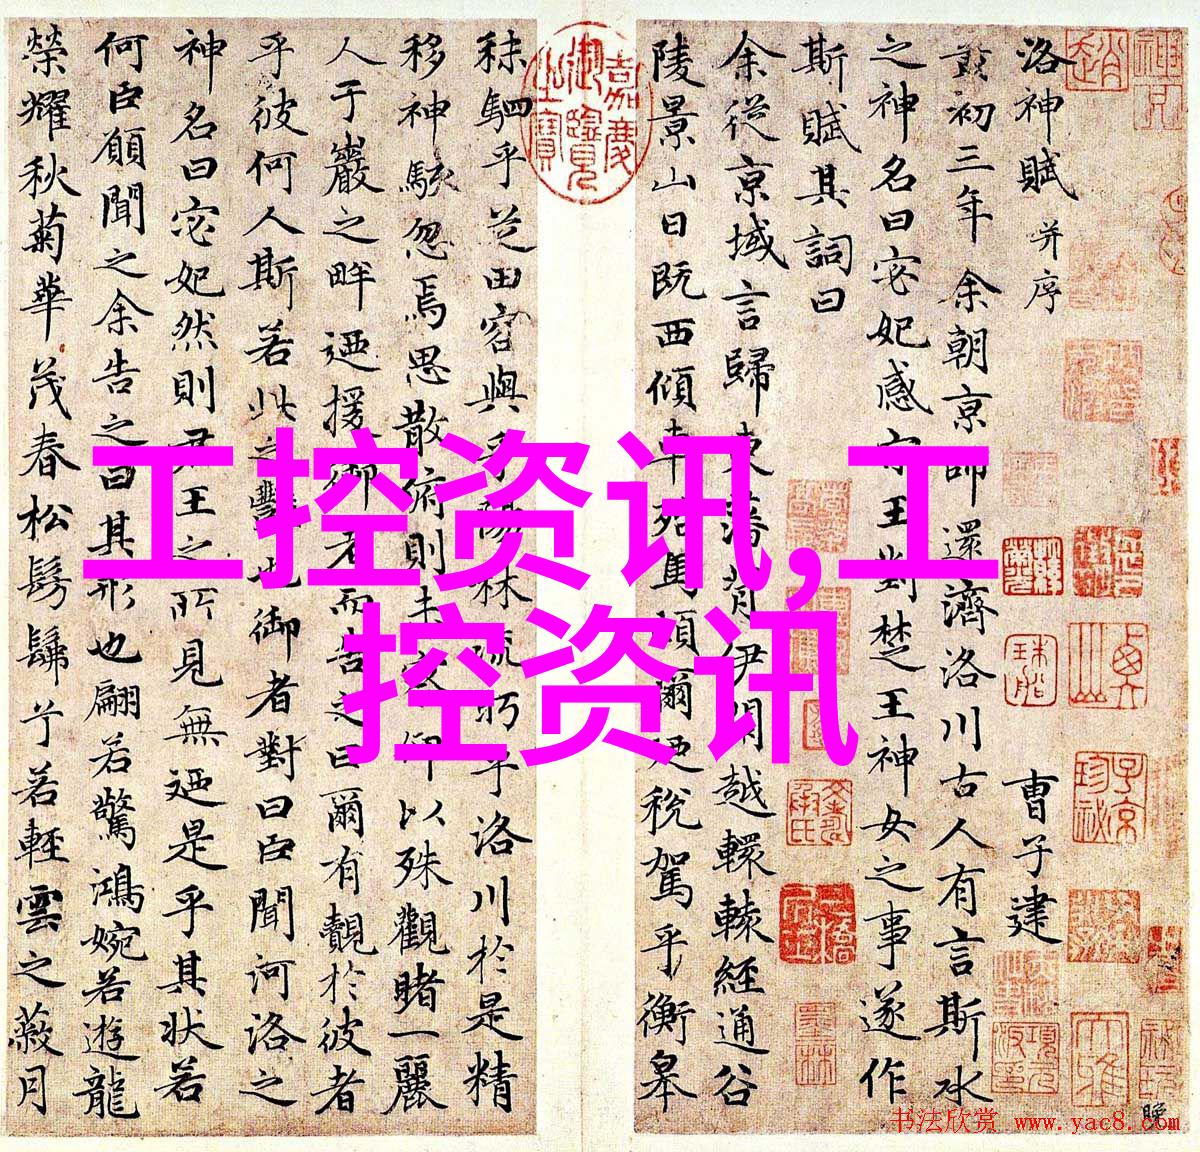 洛神賦 并序 曹子建
黃初三年余朝京師還濟洛川古人有言斯水
之神名曰宓妃感宋王對楚王神女之事遂作
斯賦其詞曰
余從京域言歸東藩背伊闕越轘轅經通谷
陵景山日既西傾車殆馬煩爾迺稅駕乎衡皋
嘉慶御覽之寶
秣駟乎芝田容與乎陽林流眄乎洛川於是精
移神駭忽焉思散俯則未察仰以殊觀睹一麗
人于巖之畔迺援御者而告之曰爾有覿於彼者
乎彼何人斯若此之豔也御者對曰臣聞河洛之
神名曰宓妃然則君王之所見無迺是乎其狀若
何臣願聞之余告之曰其形也翩若驚鴻婉若遊龍
榮耀秋菊華茂春松髣髴兮若輕雲之蔽月
工控资讯,工
控资讯
书法欣赏 www.yac8.com